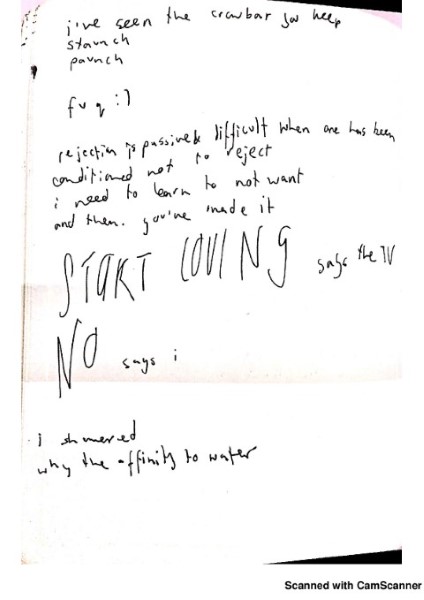 i've seen the crowbar you keep
staunch
paunch
fuq :]
rejection is difficult when one has been
conditioned not to reject
i need to learn to not want
and then. you've made it
START LOVING says the TV
NO says i
i showered
why the affinity to water
Scanned with CamScanner